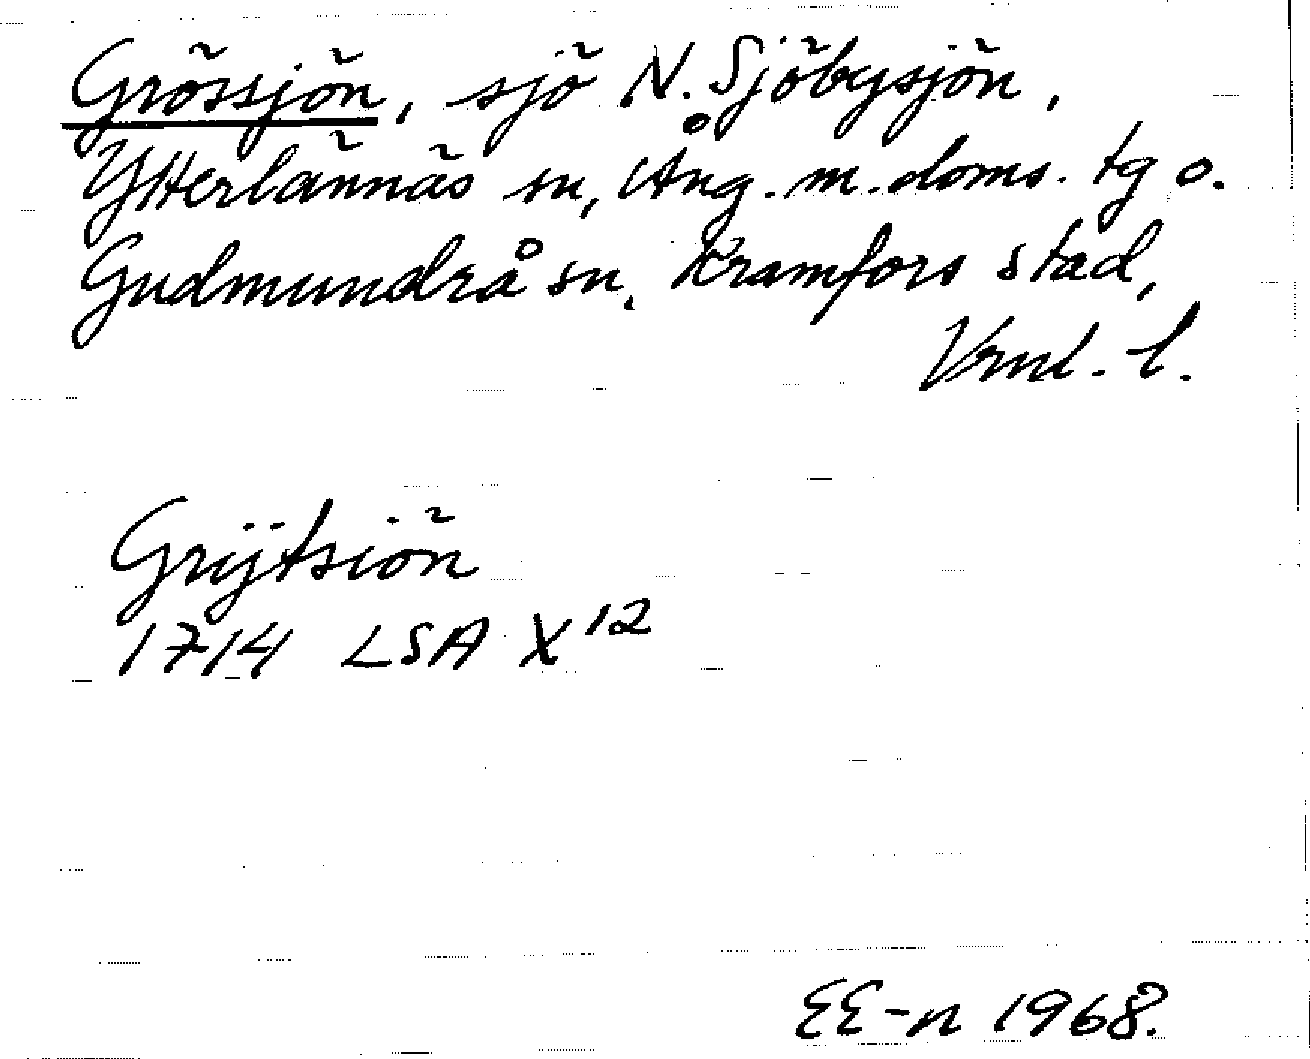 Grössjön, sjö N. Sjöbysjön,
Ytterlännäs sn, Ång. m. doms. tg o.
Gudmundrå sn, Kramfors stad,
Vrnl. l.
Grÿtsiön
1714 LSA X¹²
EE-n 1968.